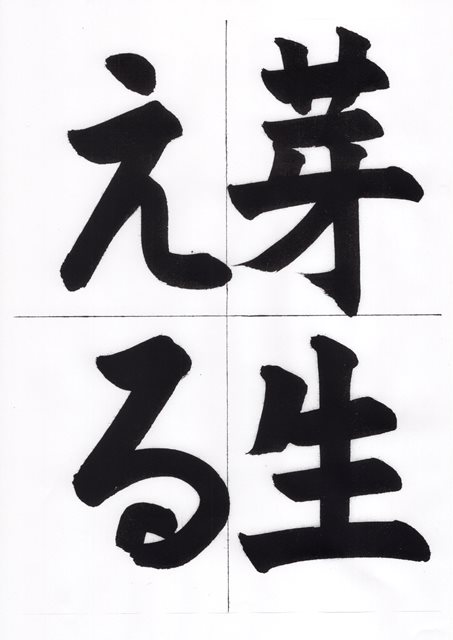 芽生
える